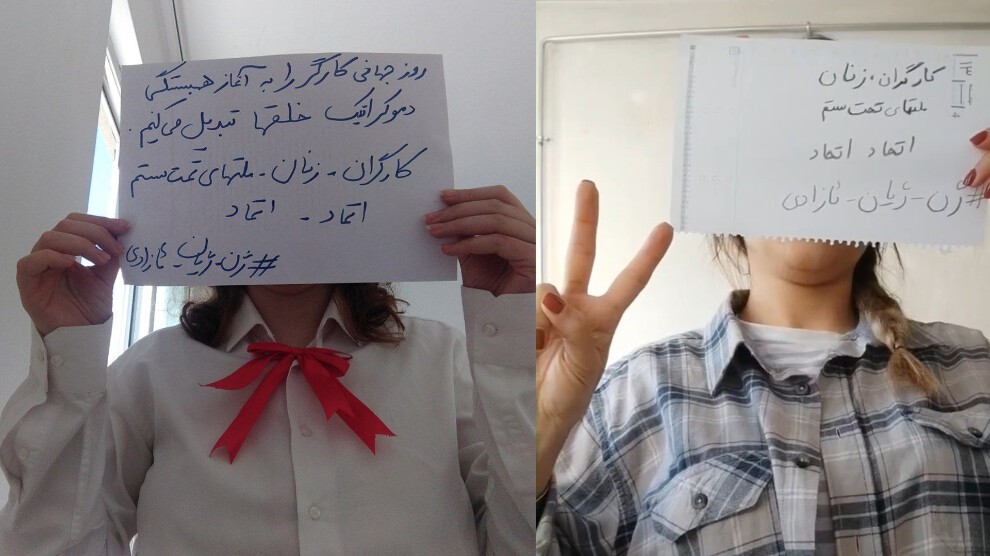 روز جهانی کارگر را به آغاز همبستگی
دموکراتیک خلقها تبدیل می‌کنیم.
کارگران - زنان - ملتهای تحت ستم
اتحاد - اتحاد
#ژن-ژیان-ئازادی
کارگران، زنان
ملتهای تحت ستم
اتحاد اتحاد
#ژن-ژیان-ئازادی